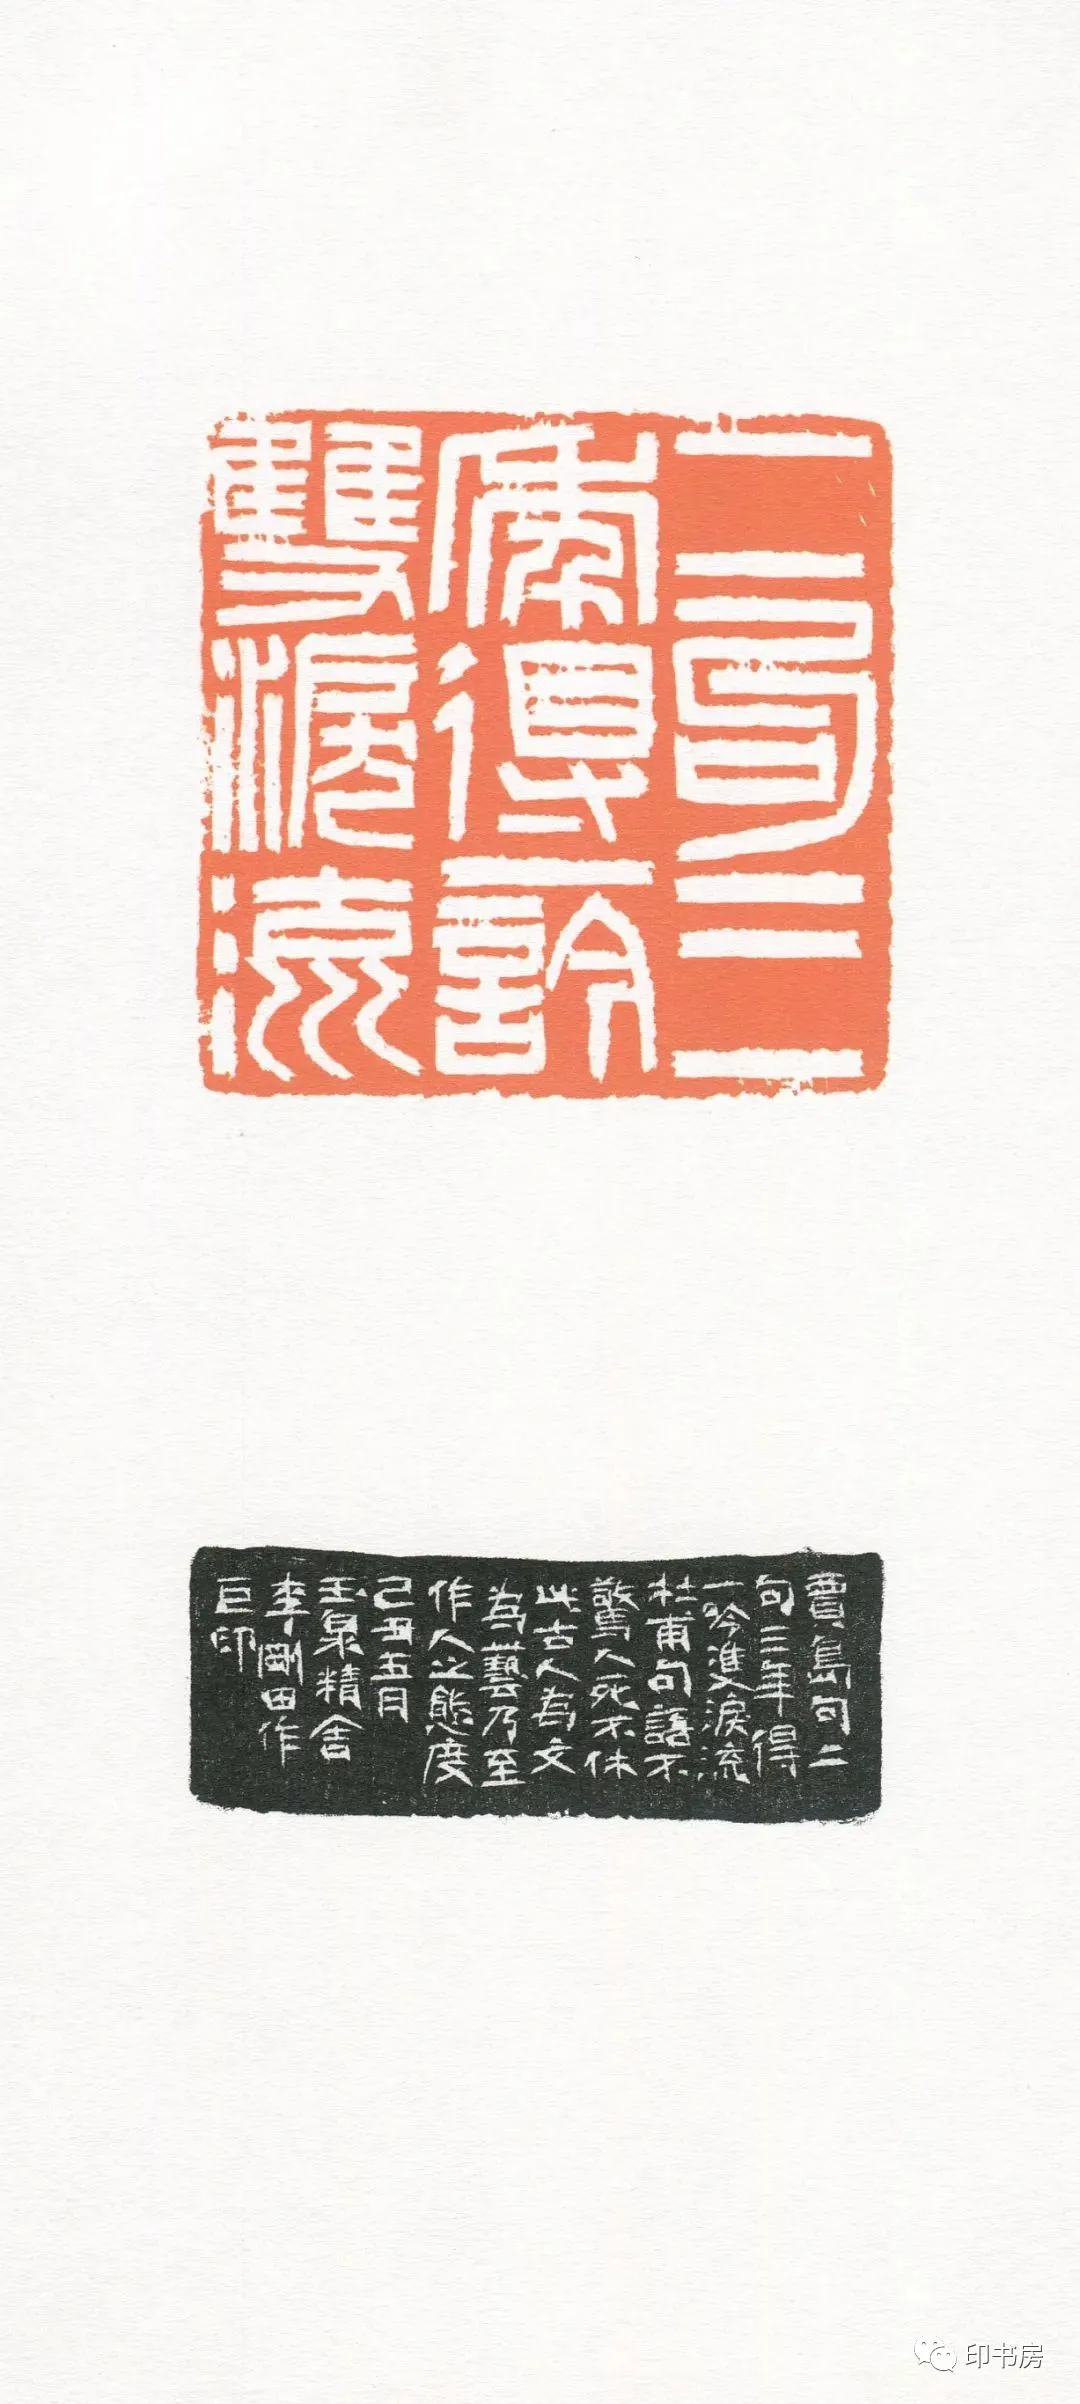 二句三
年得一吟
雙淚流
賈島句二
句三年得
一吟雙淚流
杜甫句語不
驚人死不休
此古人為文
為藝乃至
作人之態度
己丑五月
玉泉精舍
李剛田作
巨印
印书房